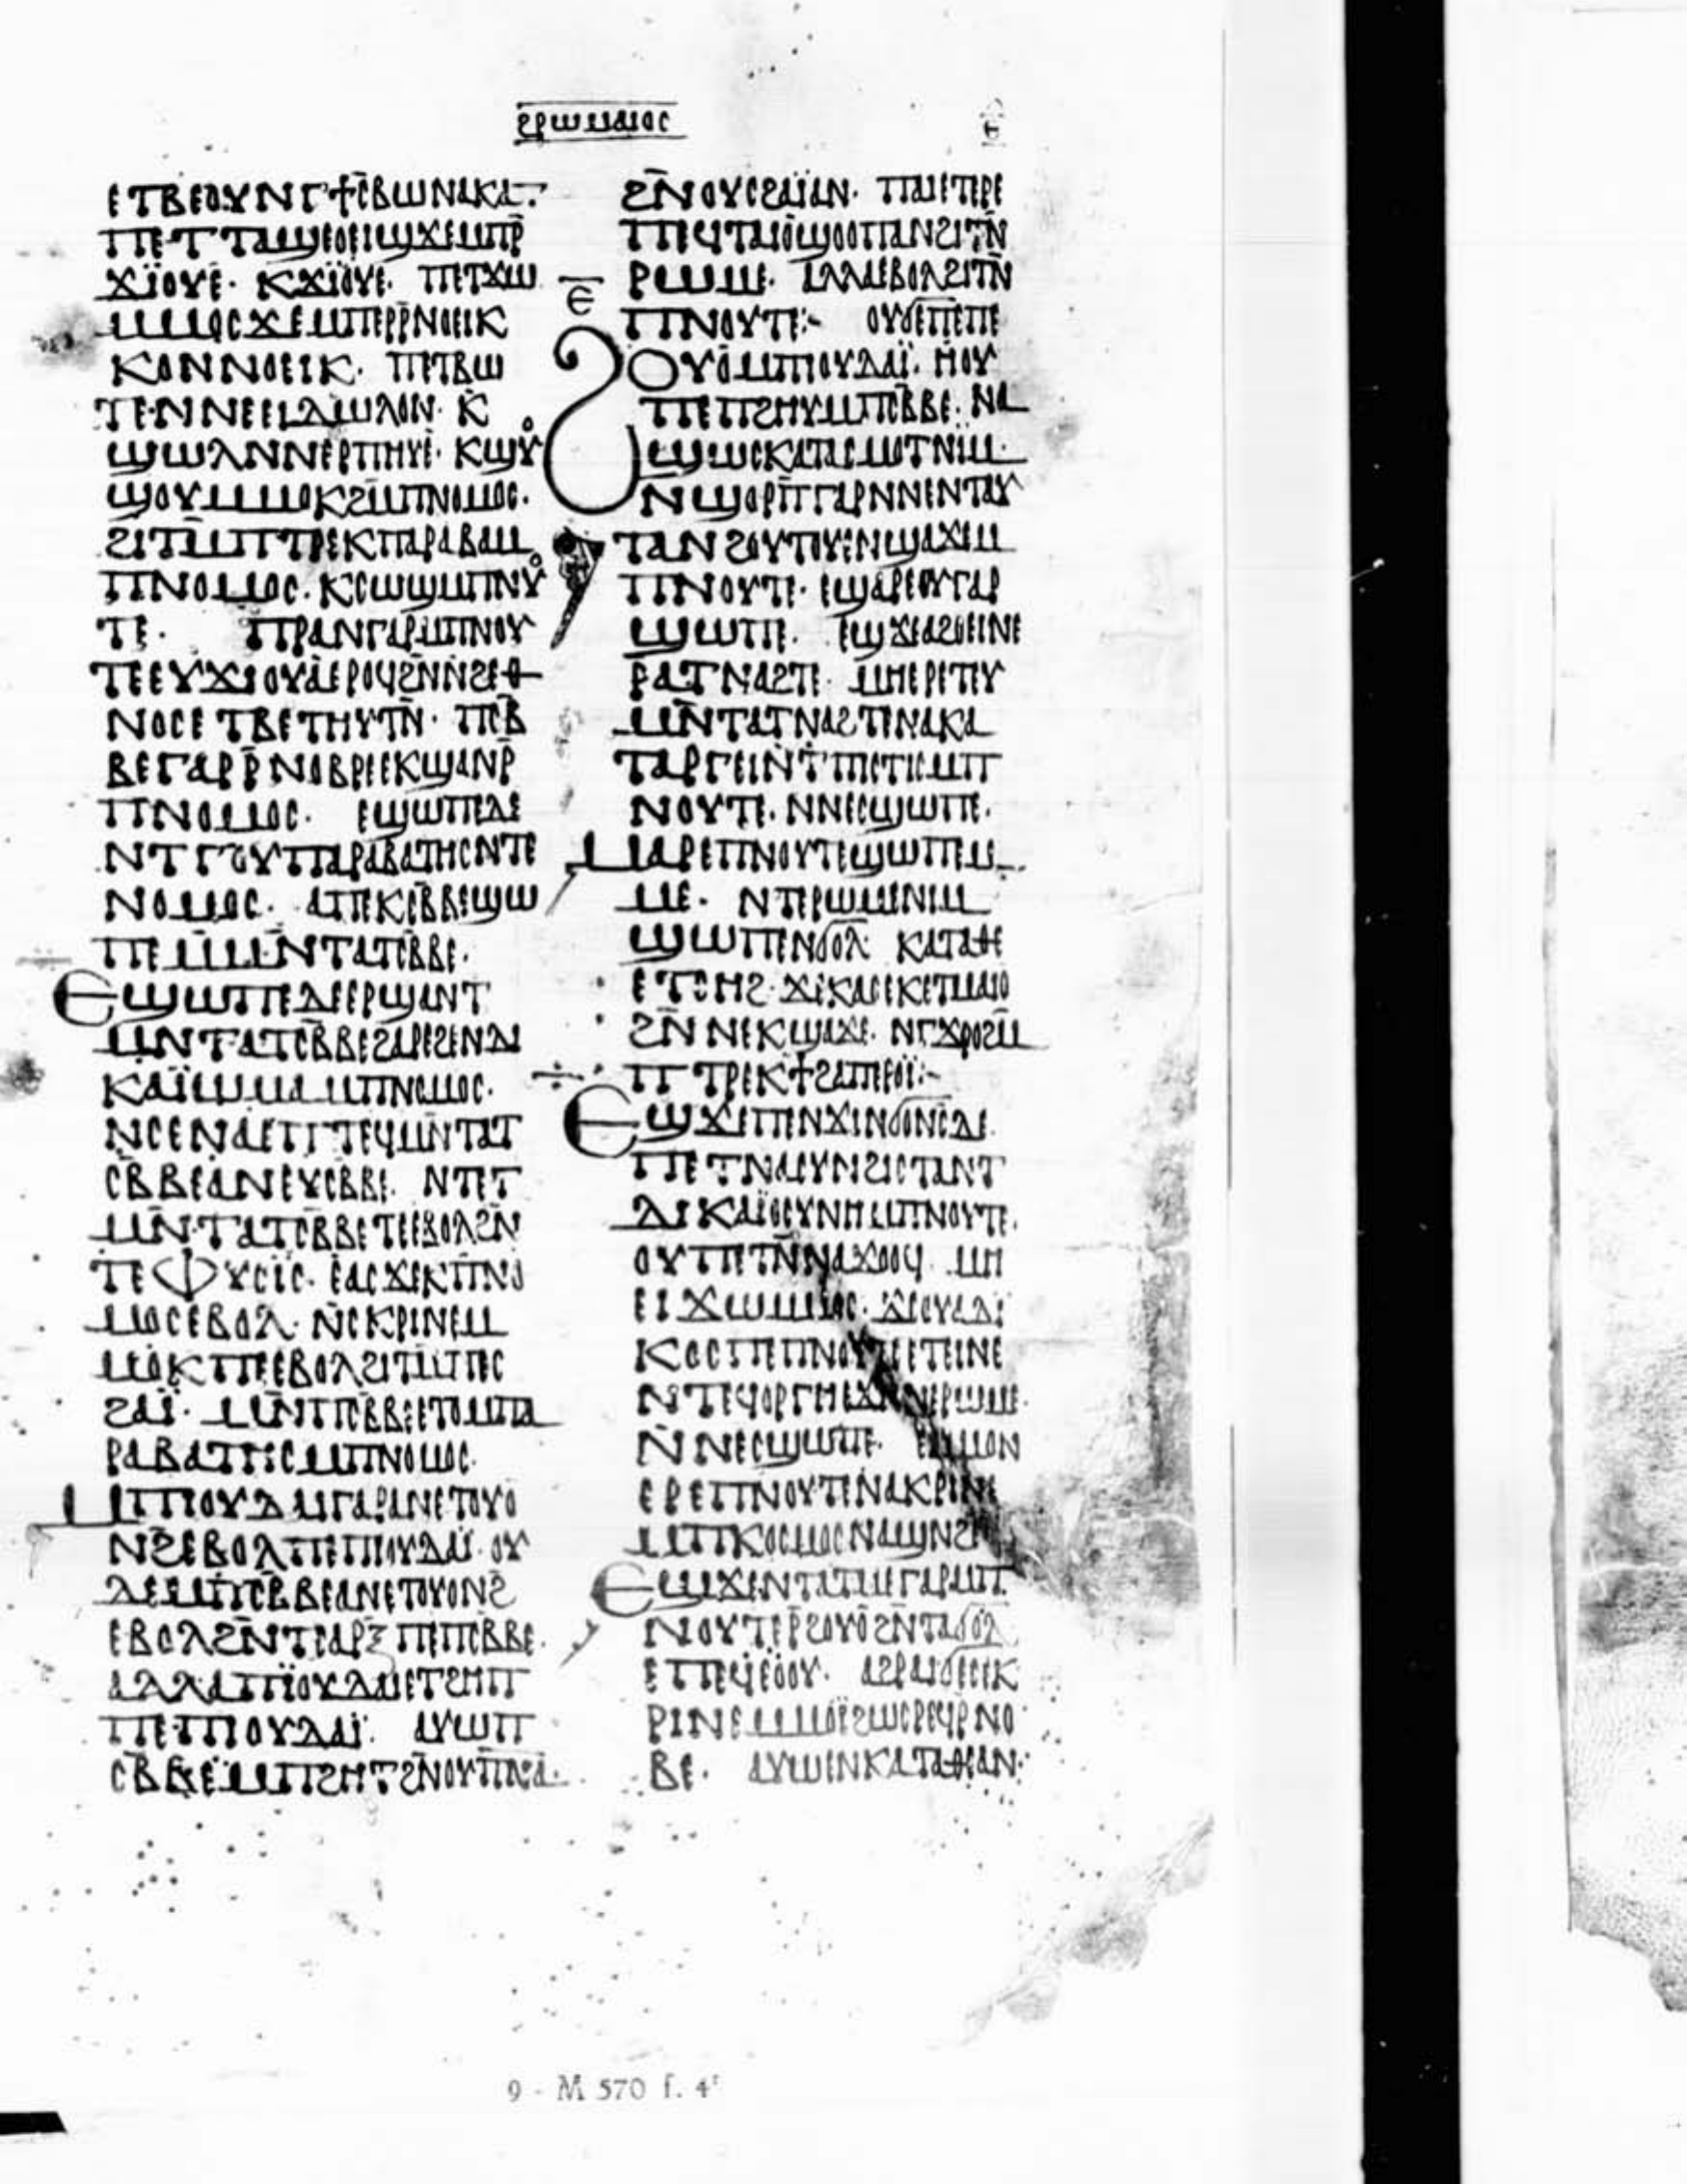 ϩⲣⲱⲙⲁⲓⲟⲥ
ⲉ
ⲉⲧⲃⲉⲟⲩⲛⲅϯⲥⲃⲱⲛⲁⲕⲁⲛ
ⲡⲉⲧⲧⲁϣⲉⲟⲉⲓϣϫⲉⲙⲡⲣ̄
ϫⲓⲟⲩⲉ· ⲕϫⲓⲟⲩⲉ· ⲡⲉⲧϫⲱ
ⲙⲙⲟⲥϫⲉⲙⲡⲉⲣⲣ̄ⲛⲟⲉⲓⲕ
ⲕⲟⲛⲛⲟⲉⲓⲕ· ⲡⲉⲧⲃⲱ
ⲧⲉⲛⲛⲉⲉⲓⲇⲱⲗⲟⲛ· ⲕ̄
ϣⲱⲗⲛⲛⲉⲣⲡⲏⲩⲉ· ⲕϣⲟⲩ
ϣⲟⲩⲙⲙⲟⲕϩⲙ̄ⲡⲛⲟⲙⲟⲥ·
ϩⲓⲧⲙ̄ⲡⲧⲣⲉⲕⲡⲁⲣⲁⲃⲁⲙ̄
ⲡⲛⲟⲙⲟⲥ· ⲕⲥⲱϣⲙⲡⲛⲟⲩ
ⲧⲉ· ⲡⲣⲁⲛⲅⲁⲣⲙⲡⲛⲟⲩ
ⲧⲉⲉⲩϫⲓⲟⲩⲁⲉⲣⲟϥϩⲛ̄ⲛ̄ϩⲉⲑ
ⲛⲟⲥⲉⲧⲃⲉⲧⲏⲩⲧⲛ̄· ⲡⲥⲃ̄
ⲃⲉⲅⲁⲣⲣ̄ⲛⲟⲃⲣⲉⲉⲕϣⲁⲛⲣ̄
ⲡⲛⲟⲙⲟⲥ· ⲉϣⲱⲡⲉⲇⲉ
ⲛⲧⲅⲟⲩⲡⲁⲣⲁⲃⲁⲧⲏⲥⲛⲧⲉ
ⲛⲟⲙⲟⲥ· ⲁⲡⲉⲕⲥⲃ̄ⲃⲉϣⲱ
ⲡⲉⲙ̄ⲙⲛⲧⲁⲧⲥⲃ̄ⲃⲉ·
ⲉϣⲱⲡⲉⲇⲉⲉⲣϣⲁⲛⲧ
ⲙⲛ̄ⲧⲁⲧⲥⲃ̄ⲃⲉϩⲁⲣⲉϩⲉⲛⲇⲓ
ⲕⲁⲓⲱⲙⲁⲙⲡⲛⲟⲙⲟⲥ·
ⲛⲥⲉⲛⲁⲉⲡⲧⲉϥⲙⲛ̄ⲧⲁⲧ
ⲥⲃ̄ⲃⲉⲁⲛⲉⲩⲥⲃ̄ⲃⲉ· ⲛⲧⲉⲧ
ⲙⲛ̄ⲧⲁⲧⲥⲃ̄ⲃⲉⲧⲉⲉⲃⲟⲗϩⲛ̄
ⲧⲉⲫⲩⲥⲓⲥ· ⲉⲁⲥϫⲉⲕⲡⲛⲟ
ⲙⲟⲥⲉⲃⲟⲗ· ⲛⲥⲕⲣⲓⲛⲉⲙ
ⲙⲟⲕⲡⲉⲉⲃⲟⲗϩⲓⲧⲙ̄ⲡⲉⲥ
ϩⲁⲓ̈· ⲙⲛ̄ⲡⲥⲃ̄ⲃⲉⲉⲧⲟⲙⲡⲁ
ⲣⲁⲃⲁⲧⲏⲥⲙⲡⲛⲟⲙⲟⲥ·
ⲙⲡⲓⲟⲩⲇⲁⲓⲅⲁⲣⲁⲛⲉⲧⲟⲩⲟ
ⲛϩⲉⲃⲟⲗⲡⲉⲡⲓⲟⲩⲇⲁⲓ· ⲟⲩ
ⲇⲉⲙⲡⲥⲃ̄ⲃⲉⲁⲛⲉⲧⲟⲩⲟⲛϩ
ⲉⲃⲟⲗϩⲛ̄ⲧⲥⲁⲣⲝⲡⲉⲡⲥⲃ̄ⲃⲉ·
ⲁⲗⲗⲁⲡⲓⲟⲩⲇⲁⲓⲉⲧϩⲏⲡ
ⲡⲉⲡⲓⲟⲩⲇⲁⲓ̈· ⲁⲩⲱⲡ
ⲥⲃ̄ⲃⲉⲙⲡϩⲏⲧϩⲛ̄ⲟⲩⲡⲛ̄ⲁ̄·
ϩⲛ̄ⲟⲩⲥϩⲁⲓ̈ⲁⲛ· ⲡⲁⲓⲉⲧⲉⲣⲉ
ⲡⲉϥⲧⲁⲓⲟϣⲟⲟⲡⲁⲛϩⲓⲧⲛ̄
ⲣⲱⲙⲉ· ⲁⲗⲗⲁⲉⲃⲟⲗϩⲓⲧⲛ̄
ⲉ̄
ⲡⲛⲟⲩⲧⲉ:- ⲟⲩϭⲉⲡⲉⲡⲉ
ϩⲟⲩⲟⲙⲡⲓⲟⲩⲇⲁⲓ̈· ⲏⲟⲩ
ⲡⲉⲡϩⲏⲩⲙⲡⲥⲃ̄ⲃⲉ· ⲛⲁ
ϣⲱⲥⲕⲁⲧⲁⲥⲙⲟⲧⲛⲓⲙ·
ⲛϣⲟⲣⲡ̄ⲅⲁⲣⲛⲛⲉⲛⲧⲁⲩ
ⲧⲁⲛϩⲟⲩⲧⲟⲩⲉⲛϣⲁϫⲉⲙ
ⲡⲛⲟⲩⲧⲉ· ⲉϣⲁⲣⲉⲟⲩⲅⲁⲣ
ϣⲱⲡⲉ· ⲉϣϫⲉⲁϩⲟⲉⲓⲛⲉ
ⲣⲁⲧⲛⲁϩⲧⲉ· ⲙⲏⲉⲣⲉⲧⲉⲩ
ⲙⲛ̄ⲧⲁⲧⲛⲁϩⲧⲉⲛⲁⲕⲁ
ⲧⲁⲣⲅⲉⲓⲛ̄ⲧⲡⲓⲥⲧⲓⲥⲙⲡ
ⲛⲟⲩⲧⲉ· ⲛⲛⲉⲥϣⲱⲡⲉ·
ⲙⲁⲣⲉⲡⲛⲟⲩⲧⲉϣⲱⲡⲉⲙ
ⲙⲉ· ⲛⲧⲉⲣⲱⲙⲉⲛⲓⲙ
ϣⲱⲡⲉⲛϭⲟⲗ· ⲕⲁⲧⲁⲑⲉ
ⲉⲧⲥⲏϩ· ϫⲉⲕⲁⲥⲉⲕⲉⲧⲙⲁⲓⲟ
ϩⲛ̄ⲛⲉⲕϣⲁϫⲉ· ⲛⲅϫⲣⲟϩⲙ̄
ⲡⲧⲣⲉⲕϯϩⲁⲡⲉⲣⲟⲓ̈:-
ⲉϣϫⲉⲡⲉⲛϫⲓⲛϭⲟⲛⲥ̄ⲇⲉ
ⲡⲉⲧⲛⲁⲥⲩⲛϩⲓⲥⲧⲁⲛⲧ
ⲇⲓⲕⲁⲓⲟⲥⲩⲛⲏⲙⲡⲛⲟⲩⲧⲉ·
ⲟⲩⲡⲉⲧⲛ̄ⲛⲁϫⲟⲟϥ· ⲙⲏ
ⲉⲓϫⲱⲙⲙⲟⲥ· ϫⲉⲟⲩⲁⲇⲓ
ⲕⲟⲥⲡⲉⲡⲛⲟⲩⲧⲉⲉⲧⲉⲓⲛⲉ
ⲛⲧⲉϥⲟⲣⲅⲏⲉϫⲛⲛⲉⲣⲱⲙⲉ·
ⲛ̄ⲛⲉⲥϣⲱⲡⲉ· ⲉⲙⲙⲟⲛ
ⲉⲣⲉⲡⲛⲟⲩⲧⲉⲛⲁⲕⲣⲓⲛⲉ
ⲙⲡⲕⲟⲥⲙⲟⲥⲛⲁϣⲛϩⲉ
ⲉϣϫⲉⲛⲧⲁⲧⲙⲉⲅⲁⲣⲙⲡ
ⲛⲟⲩⲧⲉⲣ̄ϩⲟⲩⲟϩⲛ̄ⲧⲁϭⲟⲗ
ⲉⲡⲉϥⲉⲟⲟⲩ· ⲁϩⲣⲁⲓϭⲉⲥⲉⲕ
ⲣⲓⲛⲉⲙⲙⲟⲓ̈ϩⲱⲥⲣⲉϥⲣ̄ⲛⲟ
ⲃⲉ· ⲁⲩⲱⲉⲛⲕⲁⲧⲁⲑⲉⲁⲛ·
9 - M 570 f. 4ʳ